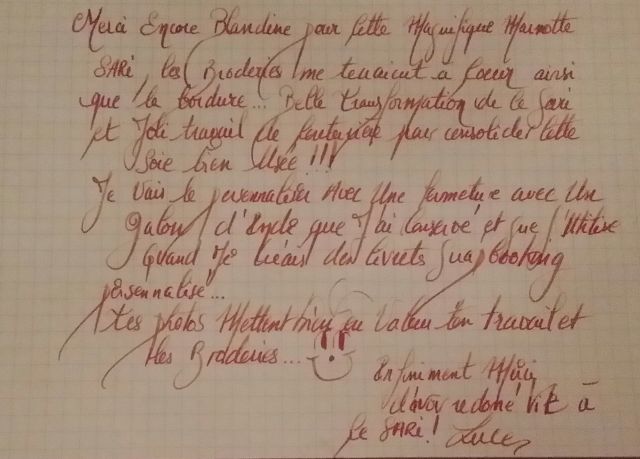 Merci Encore Blandine pour Cette Magnifique Marmotte
SARI, les Broderies me tenaient à Coeur ainsi
que la bordure... Belle transformation de le Sari
et Joli travail de fantaisie pour consolider Cette
Soie bien Usée !!!
Je Vais le personnaliser Avec Une fermeture avec Un
galon d'Inde que J'ai Conservé et que J'Utilise
Quand Je créais des livrets Scrapbooking
personnalisé...
Tes photos Mettent bien en Valeur ton travail et
les Broderies...
Infiniment Merci
d'avoir redoné ViE à
ce SARI! Luce